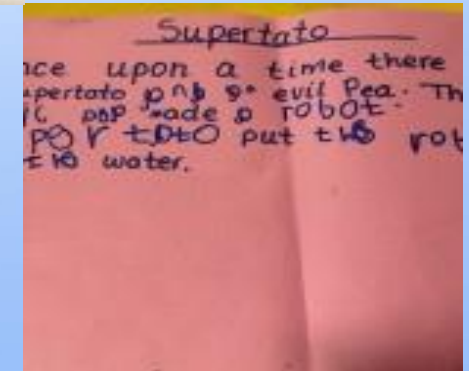 Supertato
nce upon a time there
pertato and an evil Pea. Th
made a robot.
put the rob
the water.